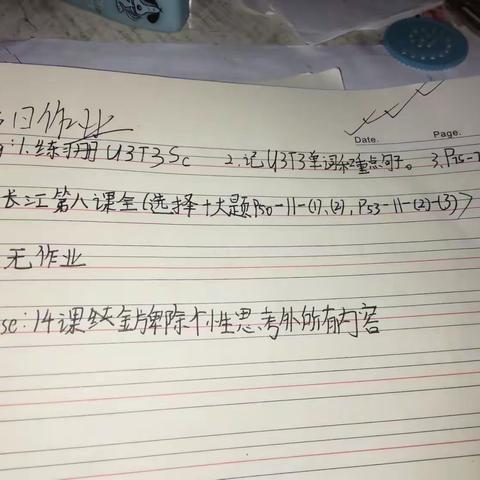 日作业
Date. Page.
:1.练习册U3T3Sc 2.记U3T3单词和重点句子。 3.P75-7
长江第八课全(选择+大题P50-11-(1),(2),P53-11-(2)-(3)>
无作业
se:14课金牌除个性思考外所有内容